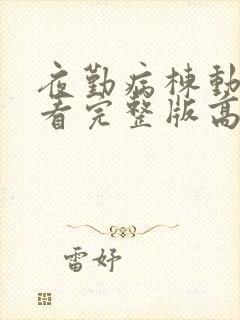 夜勤病棟動
看完整版高
雷妤